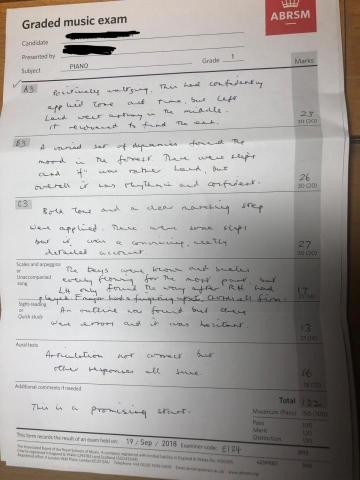 Graded music exam
ABRSM
Candidate
Presented by
Subject PIANO Grade 1 Marks
A3 Positively waltzing. This had confidently
applied tone and time, but left
hand went astray in the middle.
It recovered to find the end. 23
30 (20)
B3 A varied set of dynamics found the
mood in the forest. There were slips
and "f" was rather hard, but
overall it was rhythmic and confident. 26
30 (20)
C3 Bold tone and a clear marching step
were applied. There were some slips
but it was a convincing, really
detailed account. 27
30 (20)
Scales and arpeggios
or
Unaccompanied
song
The keys were known and scales
evenly flowing for the most part, but
LH only found the way after RH had
played. F major had a fingering upset. 17
21 (14)
Sight-reading
or
Quick study
An outline was found but there
were errors and it was hesitant. 13
21 (14)
Aural tests
Articulation not correct but
other responses all sure. 16
18 (12)
Additional comments if needed
This is a promising start.
Total 122
Maximum (Pass) 150 (100)
Pass 100
Merit 120
Distinction 130
This form records the result of an exam held on: 19 / Sep / 2018 Examiner code: E134